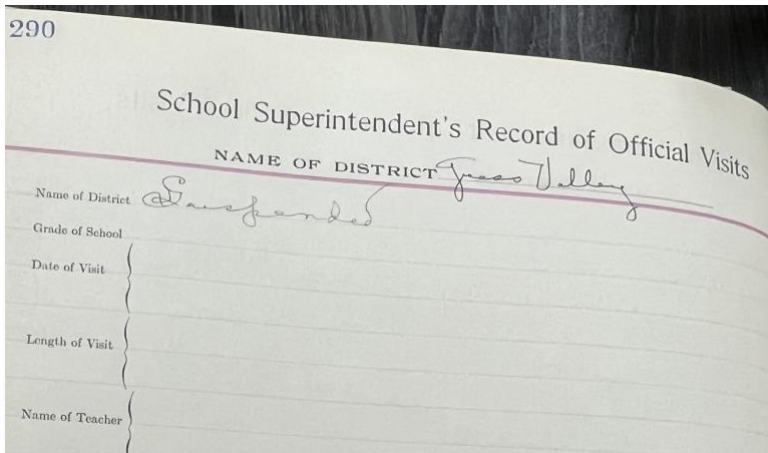 290
School Superintendent's Record of Official Visits
NAME OF DISTRICT Grass Valley
Name of District Suspended
Grade of School
Date of Visit
Length of Visit
Name of Teacher